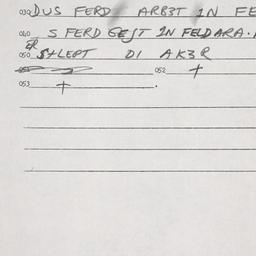 030 DUS FERD ARB3T IN FE
040 S FERD GEJT IN FELD ARA.
ER
050 S+LEPT DI AK3R
052 +
053 + .